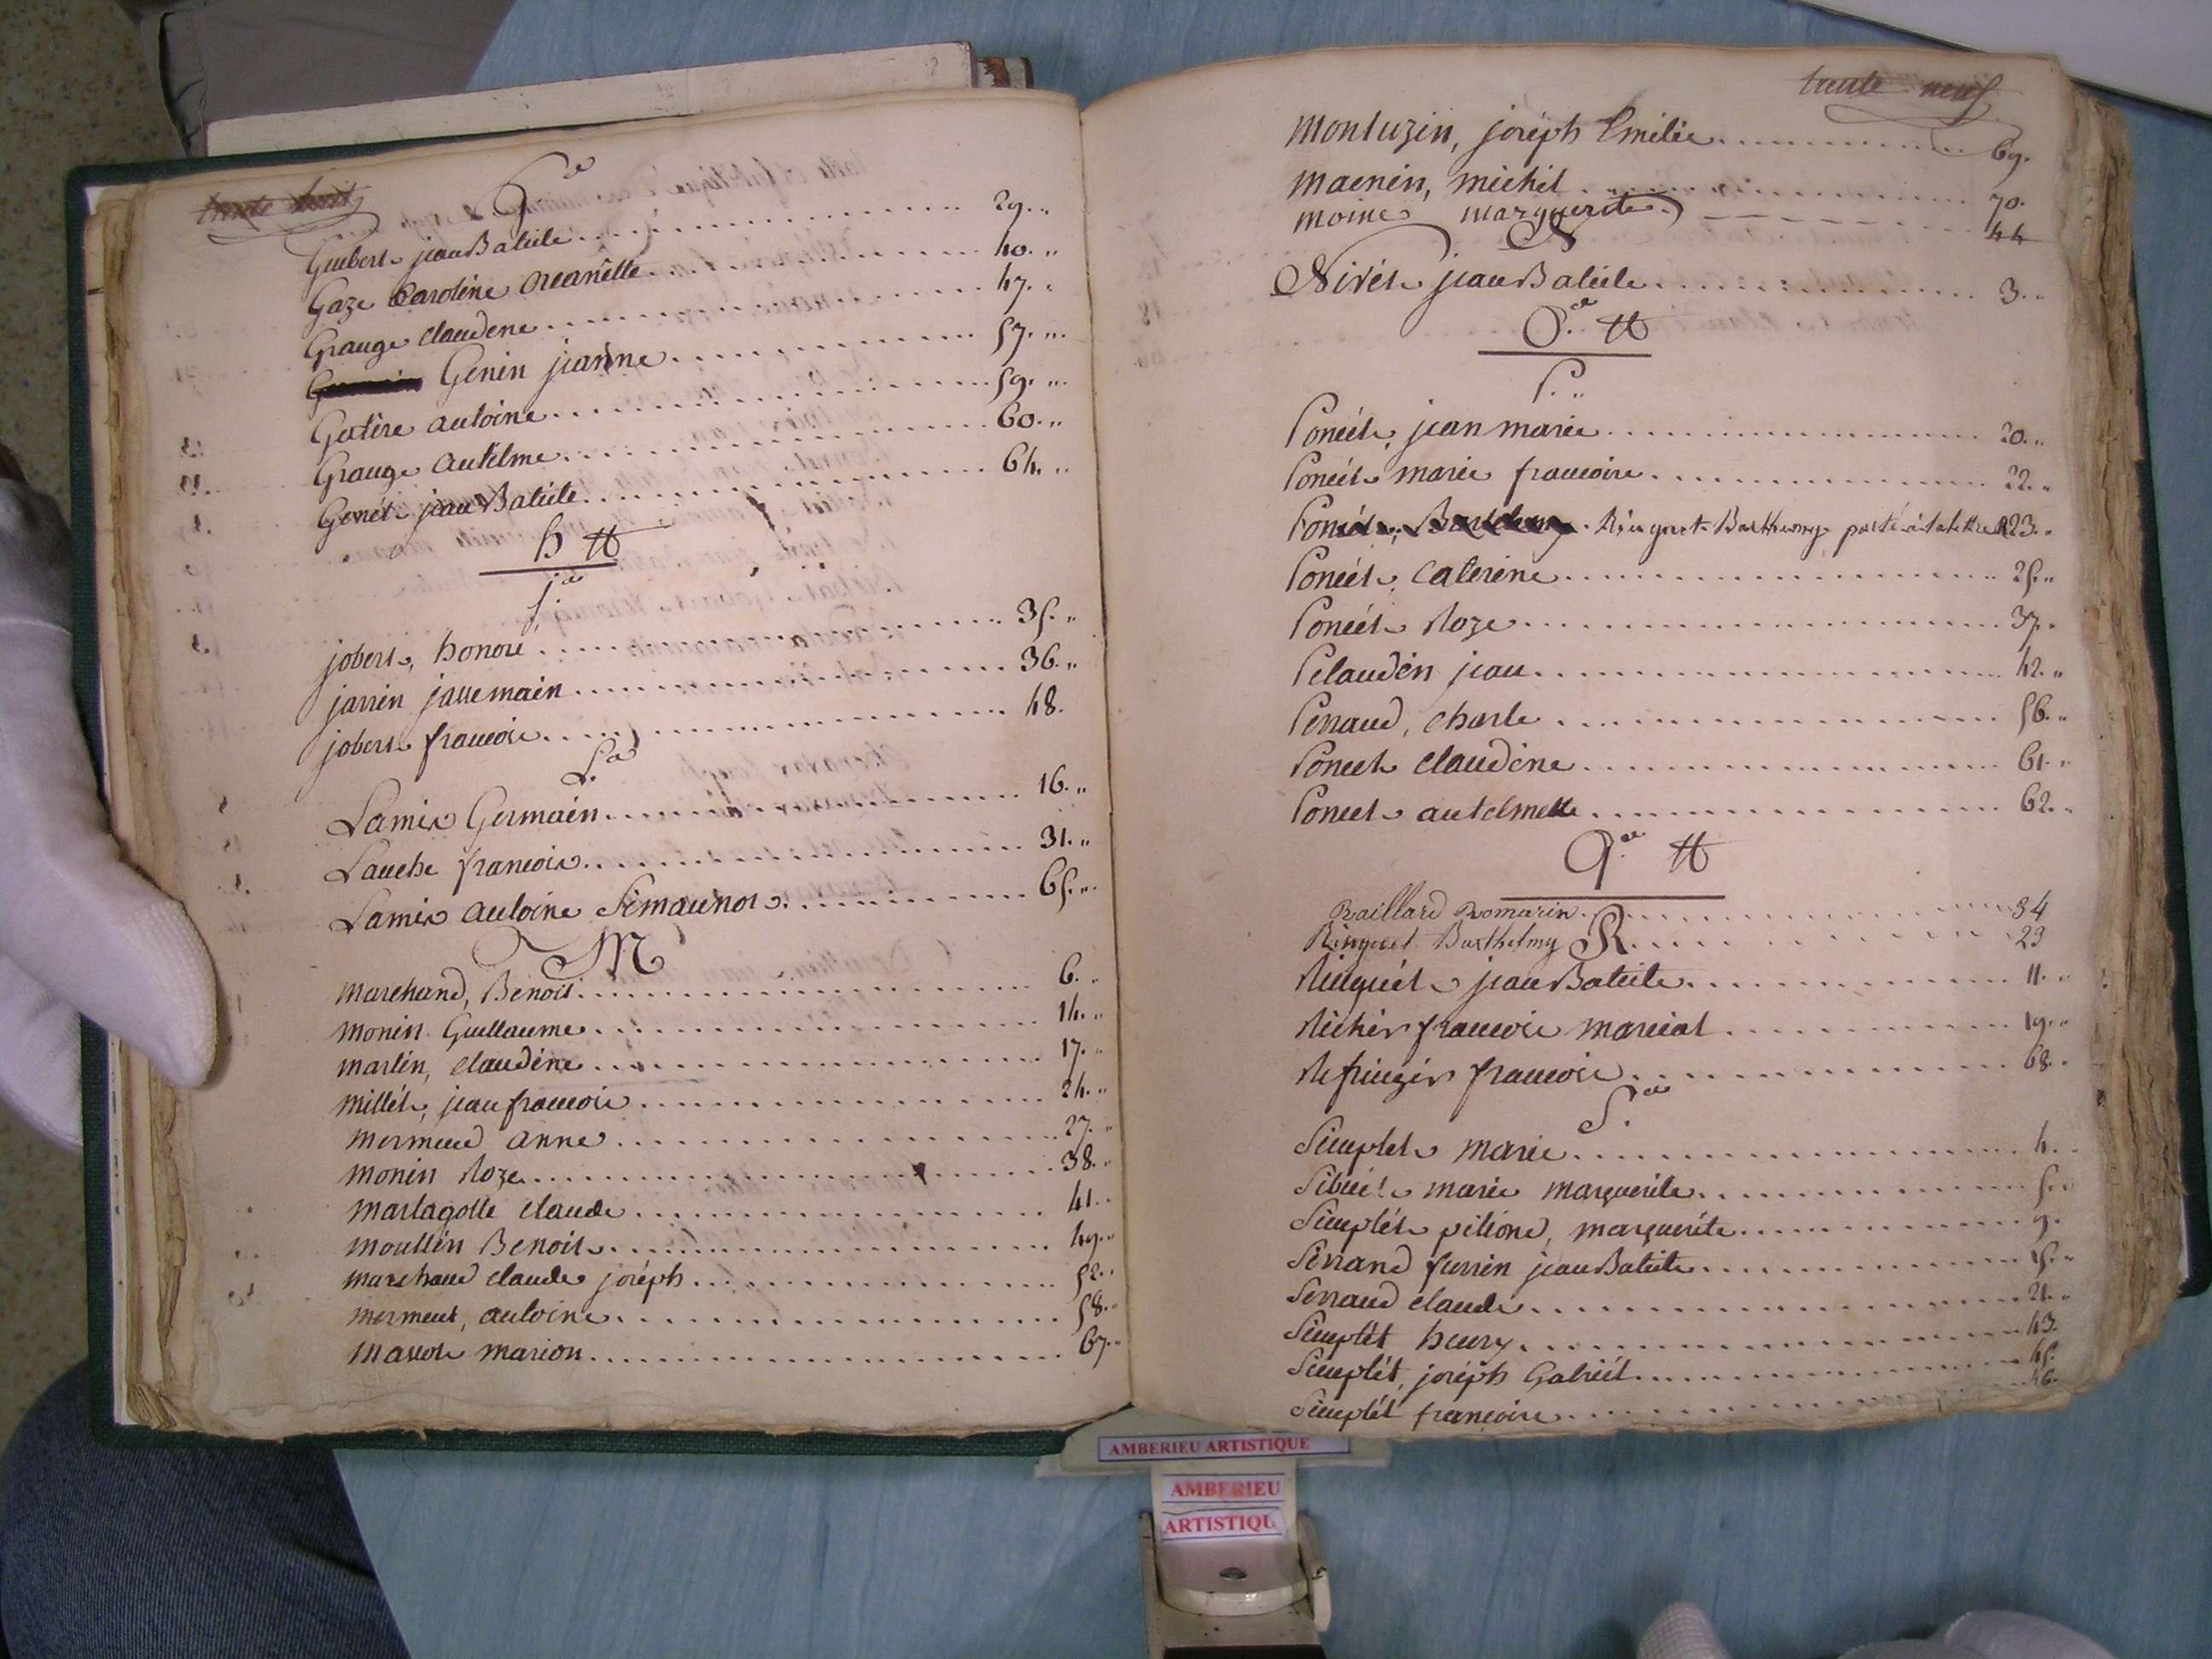 trente huit
G.e
Guibert jean Batiste 29.
Gaze Caroline 40.
Grange claudine 47.
Genin jeanne 57.
Gutire antoine 59.
Grange antelme 60.
Genét jean Batiste 64.
h #
j.e
jobert, honoré 35.
jarrin jassemain 36.
jobert francois 48.
L.e
Lamis Germain 16.
Lauche francois 31.
Lamis antoine Simaunot 65.
M
marchand, Benoit 6.
monin Guillaume 14.
martin, claudine 17.
millét, jean francois 24.
mermend anne 27.
monin Roze 38.
martagotte claude 41.
moullin Benoit 49.
marchand claude joséph 52.
mermend, antoine 58.
massot marion 67.
trente neuf
montuzin, joséph Emilie 69.
maenin, michel 70.
moine marguerite 44
N
Nivét jean Batiste 3.
O. #
P.
Poncét, jean marie 20.
Poncét marie francoise 22.
Poncét, Ringuet Barthemy porté à la lettre R 23.
Poncét, Caterine 25.
Poncét Roze 37.
Pelaudin jean 42.
Penaud, charle 56.
Poncet claudine 61.
Poncet antelmette 62.
Q.e #
Raillard Romarin 34
Ringuet Barthelmy R 23
Ringuét jean Batiste 11.
Richer francois marcial 19.
Refringer francois 68.
S.e
Simplet marie 4.
Sibuét marie marguerite 5.
Simplét pitiond, marguerite 9.
Serrand furrin jean Batiste 15.
Serraud claude 21.
Simplét henry 43.
Simplét, joséph Gabriél 45.
Simplét francoise 46.
AMBERIEU ARTISTIQUE
AMBERIEU
ARTISTIQU